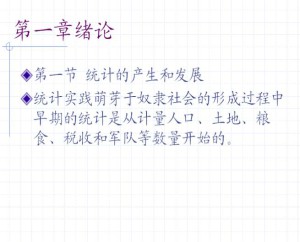 第一章绪论
◆第一节 统计的产生和发展
◆统计实践萌芽于奴隶社会的形成过程中
早期的统计是从计量人口、土地、粮
食、税收和军队等数量开始的。